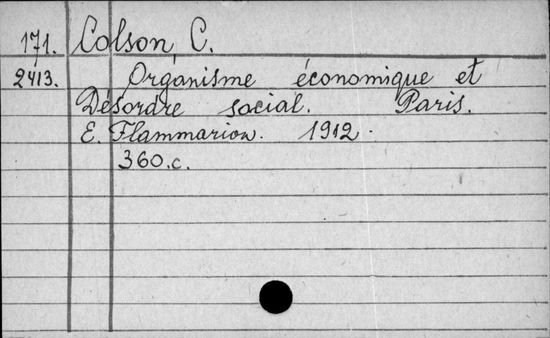 171. Colson C.
2413. Organisme économique et
Désordre social. Paris.
E. Flammarion. 1912.
360.c.